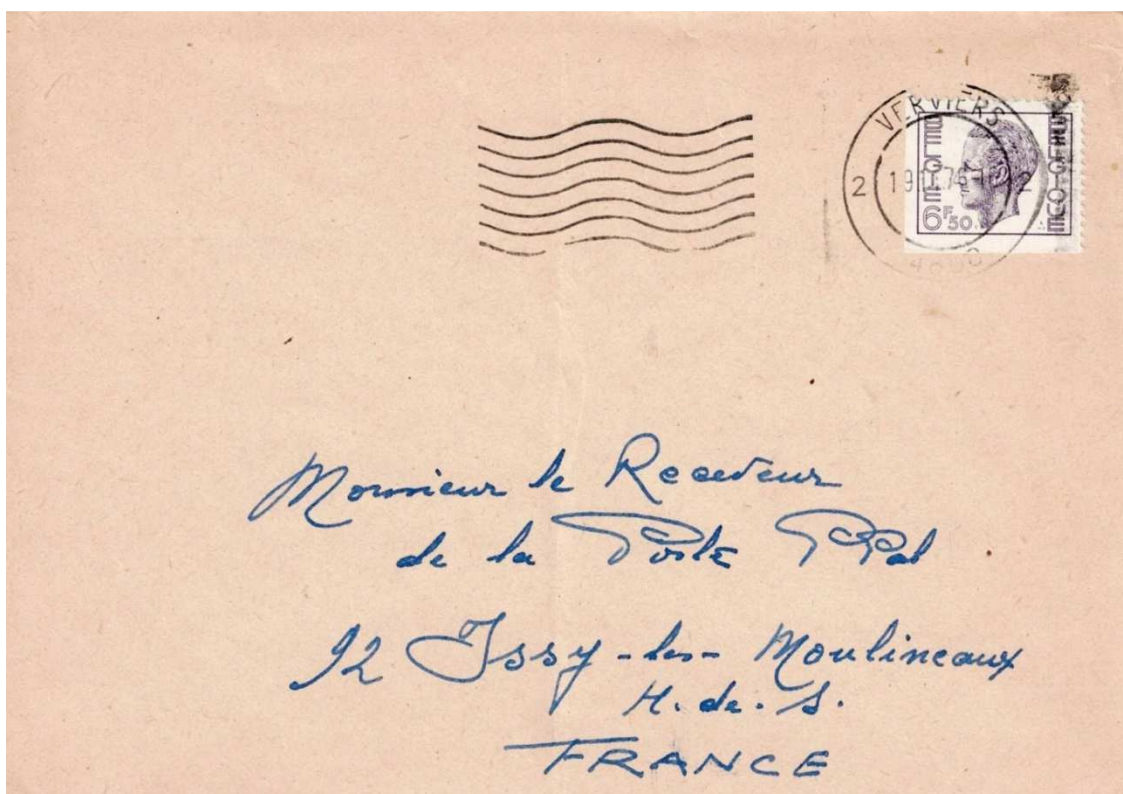 VERVIERS
2 2
4800
BELGIE
6F50
BELGIQUE
Monsieur le Receveur
de la Poste PPal
92 Issy-les-Moulineaux
H.de.S.
FRANCE